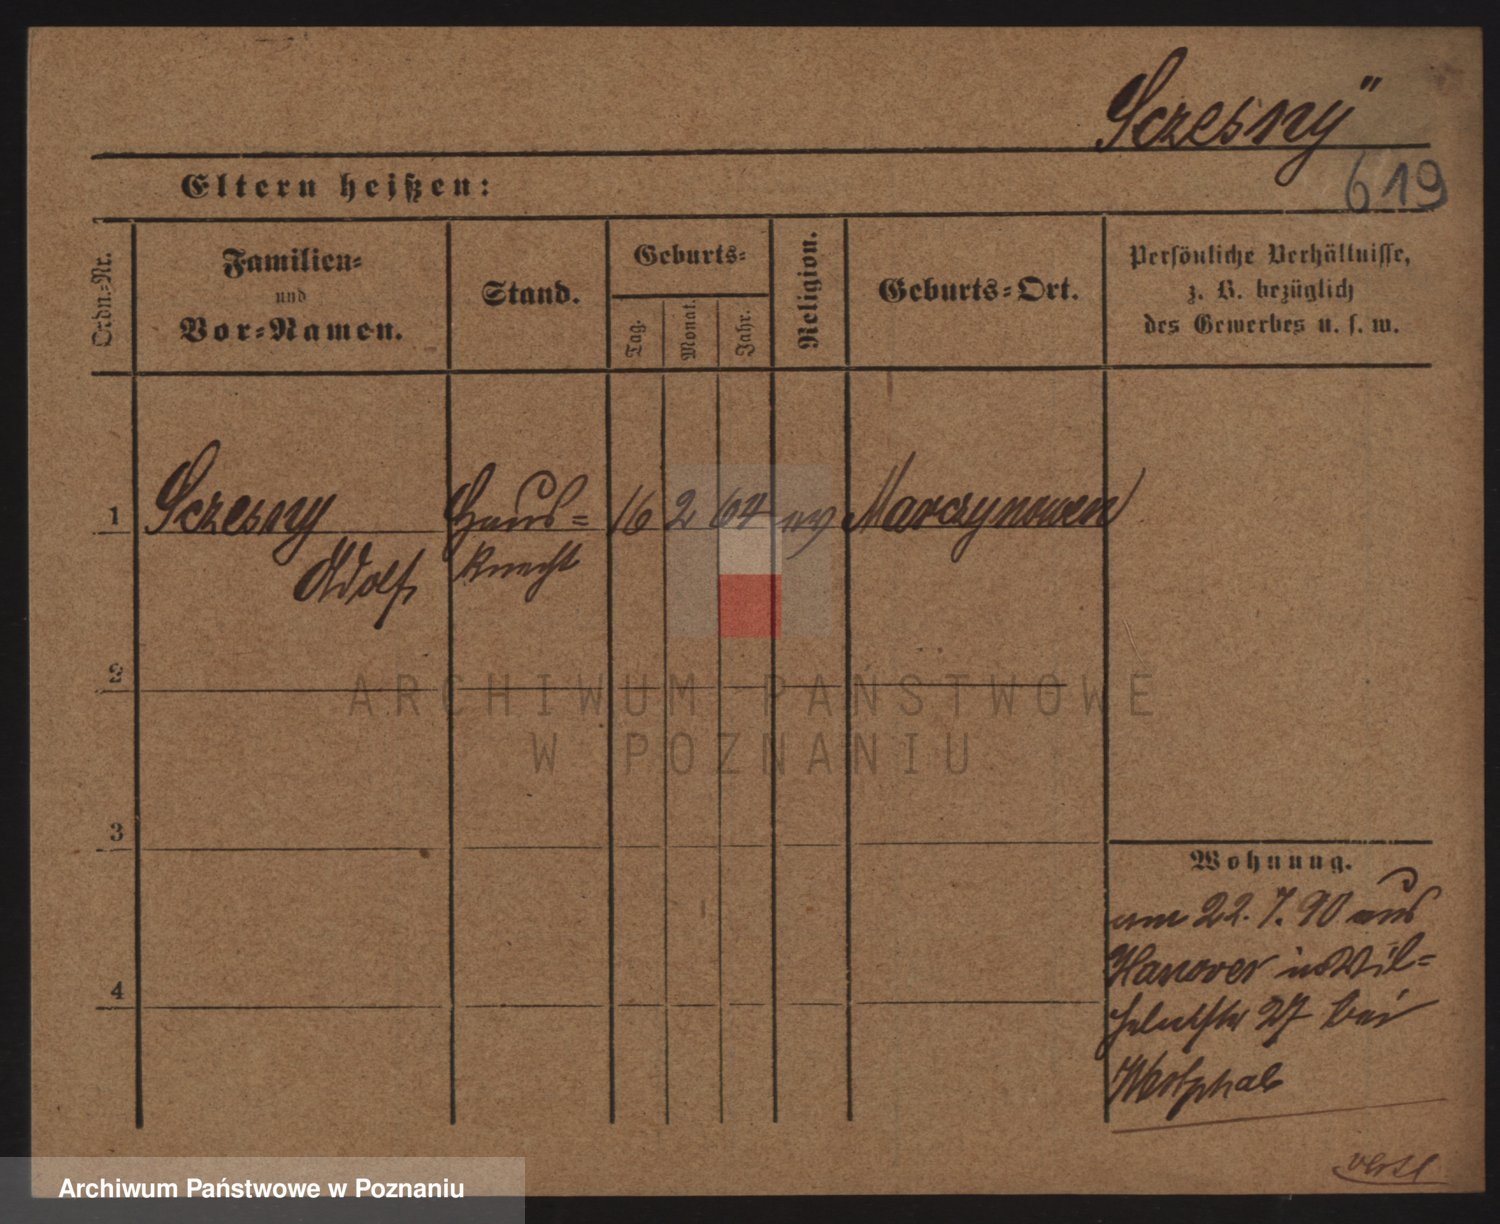 Sczesny
619
Eltern heißen:
Ordn.-Nr.
Familien-
und
Vor-Namen.
Stand.
Geburts-
Tag.
Monat.
Jahr.
Religion.
Geburts-Ort.
Persönliche Verhältnisse,
z. B. bezüglich
des Gewerbes u. s. w.
1
Sczesny
Adolf
Haus=
knecht
16
2
64
ev
Marczynowen
2
ARCHIWUM PAŃSTWOWE
W POZNANIU
3
4
Wohnung.
am 22.7.90 aus
Hanover in Wil=
helmstr 27 bei
Westphal
Archiwum Państwowe w Poznaniu